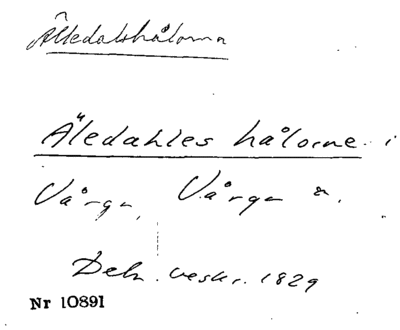 Älledalshålorna
Äledahles hålorne i
Vårgn, Vårgn n.
Deln. beskr. 1829
Nr 10891